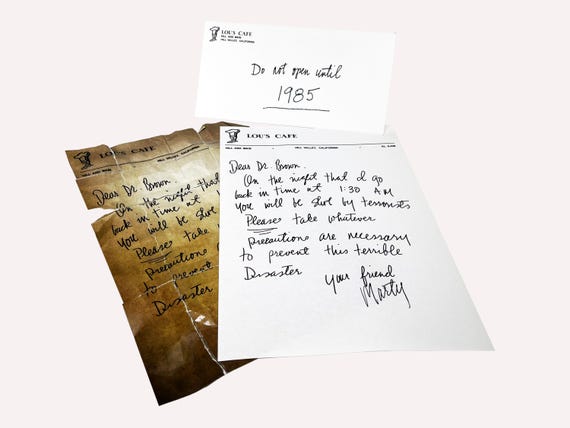 LOU'S CAFE
HILL AND MAIN
HILL VALLEY, CALIFORNIA
Do not open until
1985
LOU'S CAFE
HILL AND MAIN HILL VALLEY, CALIFORNIA
Dear Dr. Brown.
On the night that I go
back in time at 1:30 A.M
You will be Shot by terrorists
Please take whatever
precautions are necessary
to prevent this terrible
Disaster
Your friend
Marty
LOU'S CAFE
HILL AND MAIN HILL VALLEY, CALIFORNIA
Dear Dr. Brown
On the night that
back in time at
You will be Shot
Please take
precautions
to prevent
Disaster